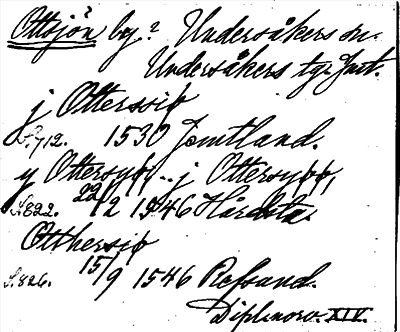 Ottsjön by? Undersåkers sn.
Undersåkers tgr Jmt.
j Otterssiø
S.712. 1530 Jemtland.
y Ottersyøø.. j Ottersyøø,
S.822. 22/2 1546 Hårdsta.
Otthersiø
S.826. 15/9 1546 Refsund.
Dipl.norv. XIV.